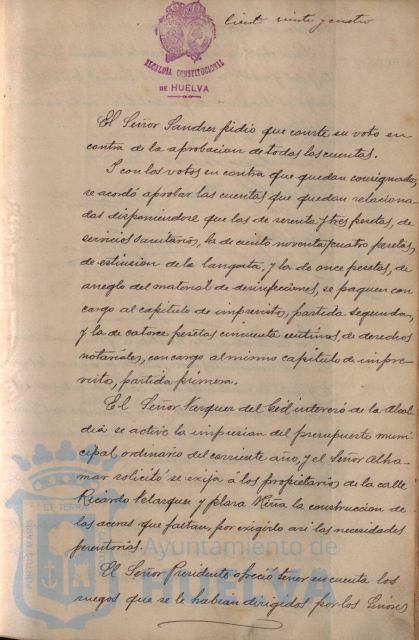 ciento veinte y cuatro
ALCALDIA CONSTITUCIONAL
DE HUELVA
El Señor Sandrez pidió que conste su voto en
contra de la aprobacion de todas las cuentas.
I con los votos en contra que quedan consignados
se acordó aprobar las cuentas que quedan relaciona
das disponiendose que las de sesenta y tres pesetas, de
servicios sanitarios, la de ciento noventa y cuatro pesetas,
de estincion de la langosta, y la de once pesetas, de
arreglo del material de desinfecciones, se paguen con
cargo al capitulo de imprevistos, partida segunda,
y la de catorce pesetas cincuenta centimos, de derechos
notariales, con cargo al mismo capitulo de impre
visto, partida primera.
El Señor Vazquez del Cid interesó de la Alcal
dia se active la impresion del presupuesto muni
cipal ordinario del corriente año, y el Señor Alha
mar solicitó se exija á los propietarios de la calle
Ricardo Velazquez y plaza Niña la construccion de
las aceras que faltan, por exigirlo asi las necesidades
perentorias.
El Señor Presidente ofreció tener en cuenta los
ruegos que se le habian dirigidos por los Señores
PORTUS MARIS ET TERRAE
Ayuntamiento de
HUELVA